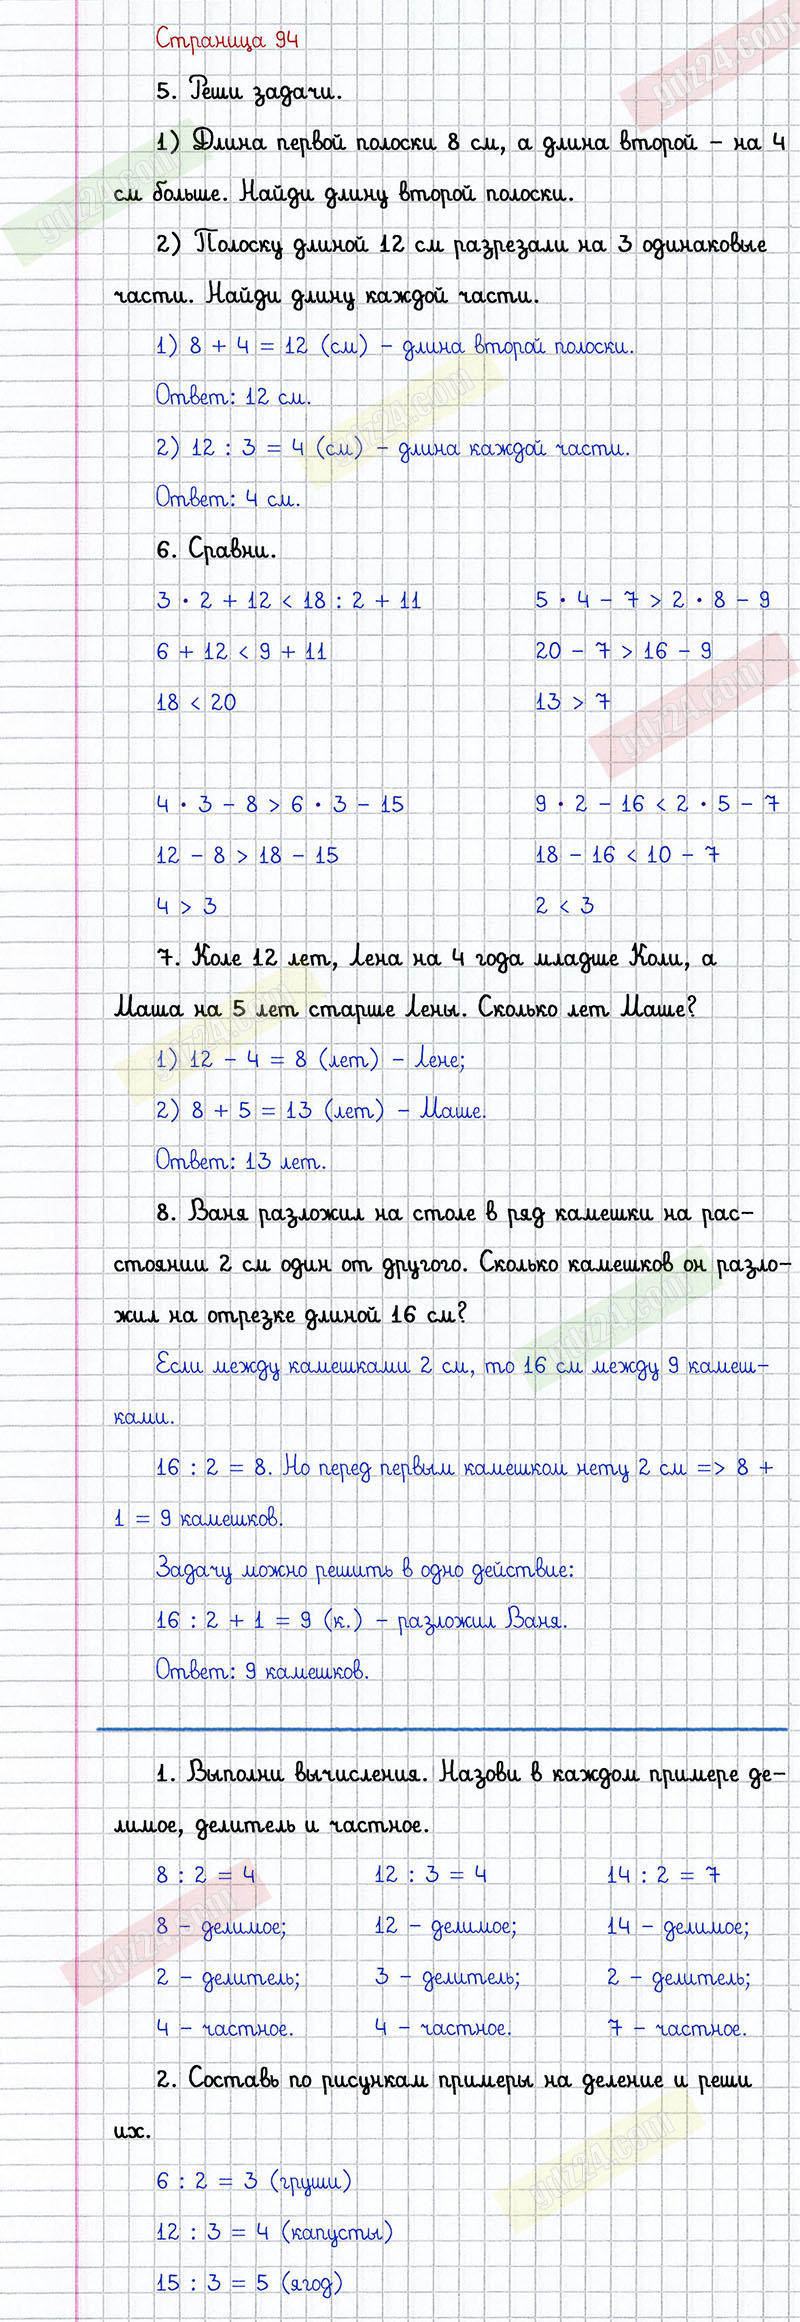 Страница 94
5. Реши задачи.
1) Длина первой полоски 8 см, а длина второй – на 4
см больше. Найди длину второй полоски.
2) Полоску длиной 12 см разрезали на 3 одинаковые
части. Найди длину каждой части.
1) 8 + 4 = 12 (см) – длина второй полоски.
Ответ: 12 см.
2) 12 : 3 = 4 (см) – длина каждой части.
Ответ: 4 см.
6. Сравни.
3 · 2 + 12 < 18 : 2 + 11 5 · 4 – 7 > 2 · 8 – 9
6 + 12 < 9 + 11 20 – 7 > 16 – 9
18 < 20 13 > 7
4 · 3 – 8 > 6 · 3 – 15 9 · 2 – 16 < 2 · 5 – 7
12 – 8 > 18 – 15 18 – 16 < 10 – 7
4 > 3 2 < 3
7. Коле 12 лет, Лена на 4 года младше Коли, а
Маша на 5 лет старше Лены. Сколько лет Маше?
1) 12 – 4 = 8 (лет) – Лене;
2) 8 + 5 = 13 (лет) – Маше.
Ответ: 13 лет.
8. Ваня разложил на столе в ряд камешки на рас–
стоянии 2 см один от другого. Сколько камешков он разло–
жил на отрезке длиной 16 см?
Если между камешками 2 см, то 16 см между 9 камеш–
ками.
16 : 2 = 8. Но перед первым камешком нету 2 см => 8 +
1 = 9 камешков.
Задачу можно решить в одно действие:
16 : 2 + 1 = 9 (к.) – разложил Ваня.
Ответ: 9 камешков.
1. Выполни вычисления. Назови в каждом примере де–
лимое, делитель и частное.
8 : 2 = 4 12 : 3 = 4 14 : 2 = 7
8 – делимое; 12 – делимое; 14 – делимое;
2 – делитель; 3 – делитель; 2 – делитель;
4 – частное. 4 – частное. 7 – частное.
2. Составь по рисункам примеры на деление и реши
их.
6 : 2 = 3 (груши)
12 : 3 = 4 (капусты)
15 : 3 = 5 (ягод)
gdz24.com
gdz24.com
gdz24.com
gdz24.com
gdz24.com
gdz24.com
gdz24.com
gdz24.com